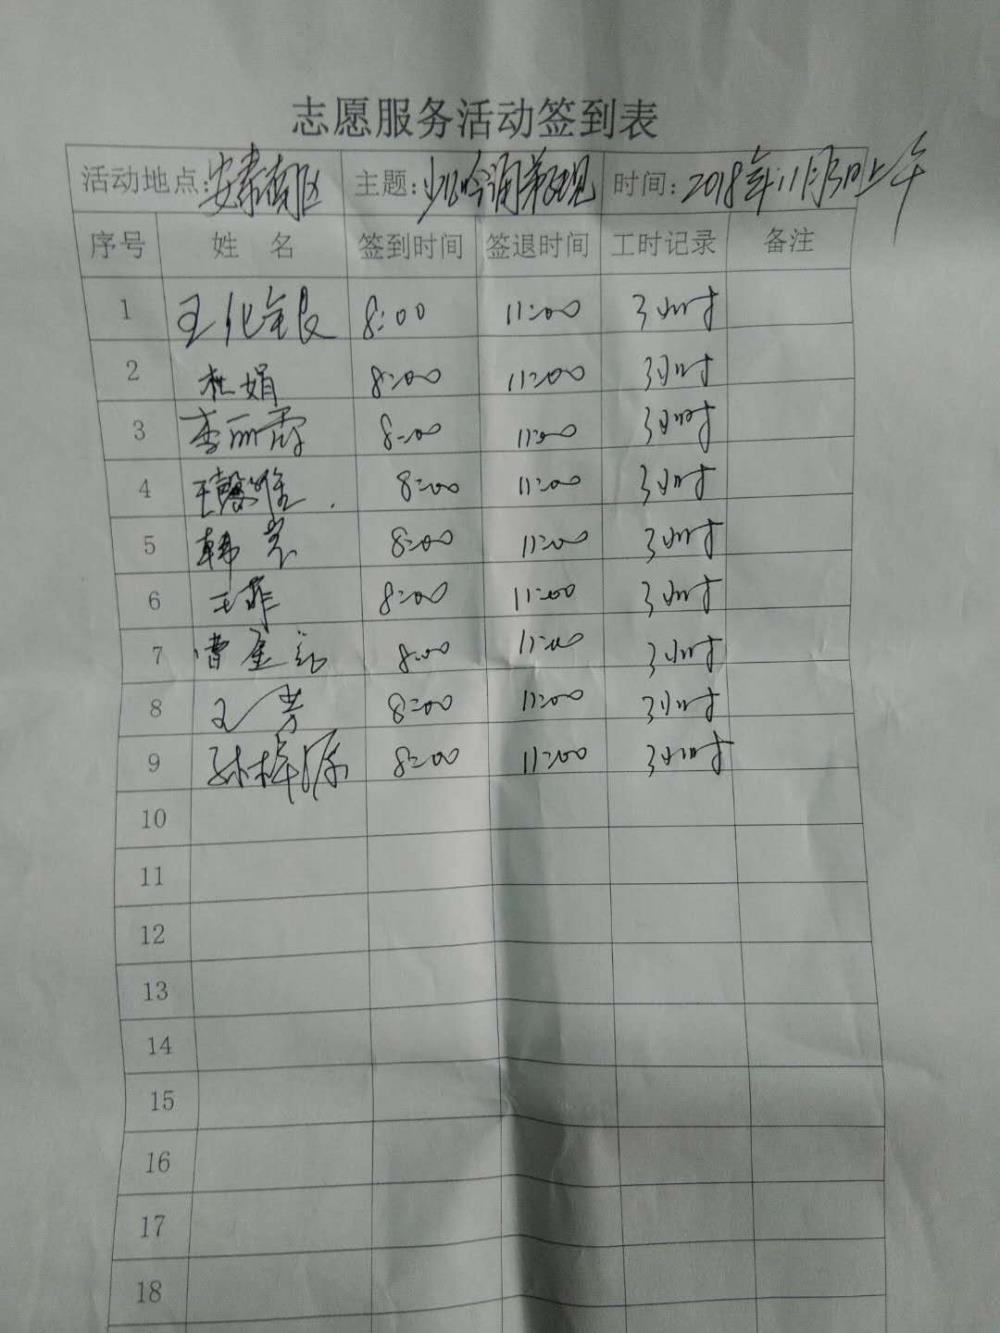 志愿服务活动签到表
活动地点: 南区 主题: 少儿吟诵 时间: 2018年11月3日上午
序号 姓 名 签到时间 签退时间 工时记录 备注
1 王化银 8:00 11:00 3小时
2 杜娟 8:00 11:00 3小时
3 李丽霞 8:00 11:00 3小时
4 王馨 8:00 11:00 3小时
5 韩 8:00 11:00 3小时
6 王菲 8:00 11:00 3小时
7 曹 8:00 11:00 3小时
8 王芳 8:00 11:00 3小时
9 孙梓源 8:00 11:00 3小时
10
11
12
13
14
15
16
17
18